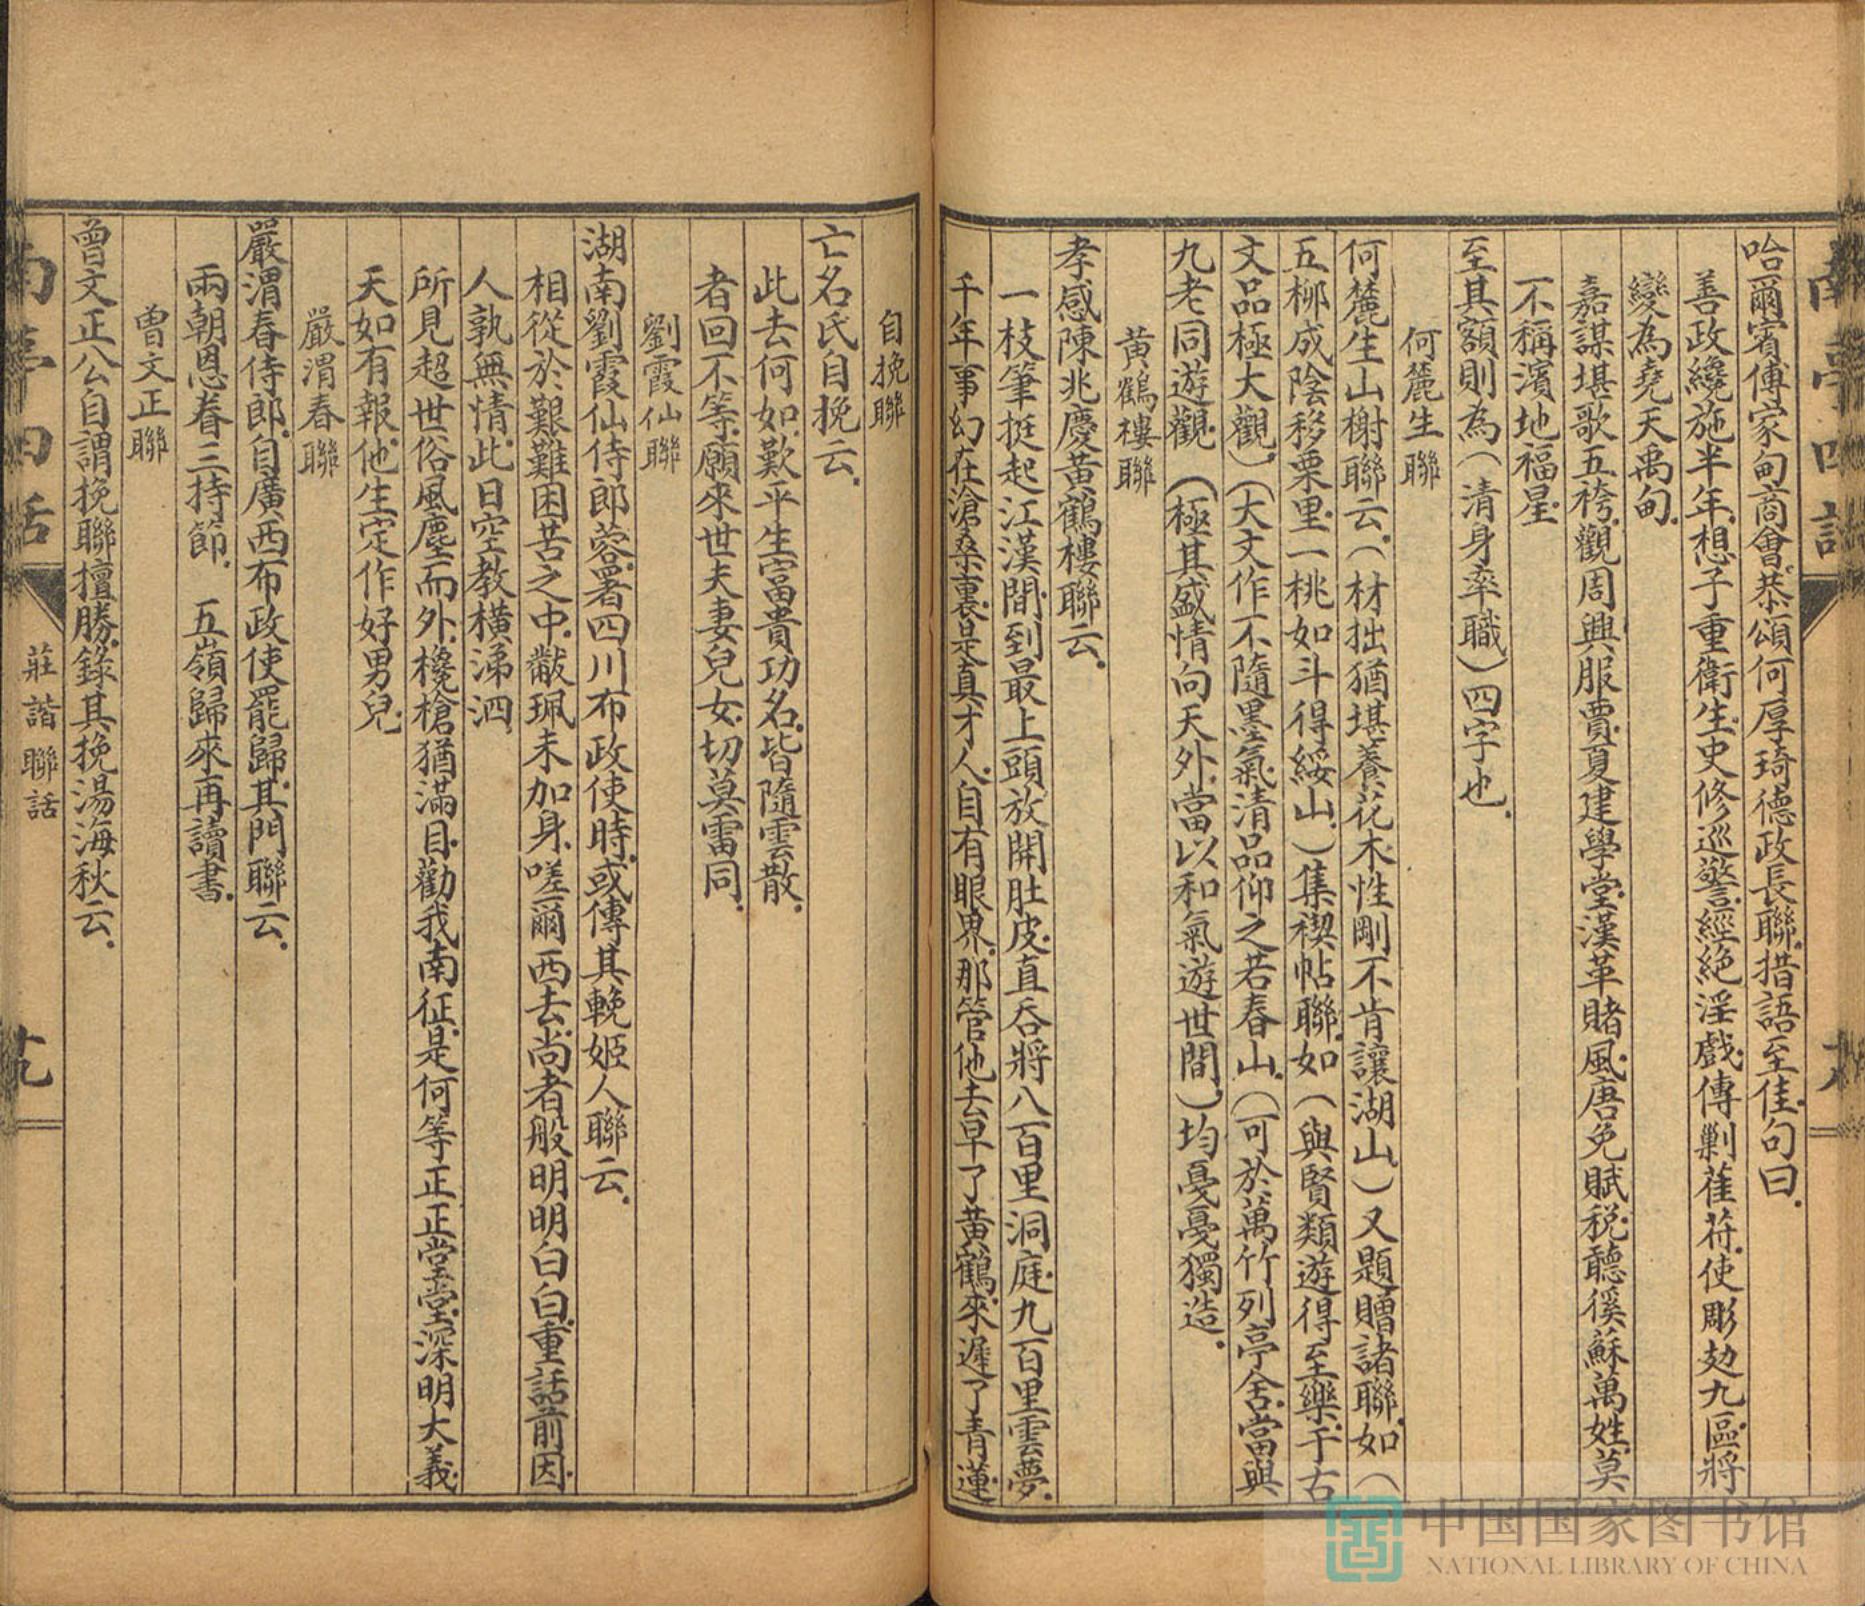 哈爾賓傅家甸商會.恭頌何厚琦德政長聯.措語至佳.句曰.
善政纔施半年.想子重衛生.史修巡警.經絶淫戲.傳剿萑苻.使彫攰九區.將
變為堯天禹甸.
嘉謀堪歌五袴.觀周興服賈.夏建學堂.漢革賭風.唐免賦稅.聽徯蘇萬姓.莫
不稱濱地福星.
至其額則為(清身率職)四字也.
何麓生聯
何麓生山榭聯云.(材拙猶堪養花木.性剛不肯讓湖山)又題贈諸聯.如(
五柳成陰移栗里.一桃如斗得綏山.)集禊帖聯.如(與賢類遊得至樂.于古
文品極大觀)(大文作不隨墨氣.清品仰之若春山.)(可於萬竹列亭舍.當與
九老同遊觀.(極其盛情向天外.當以和氣遊世間)均戞戞獨造.
黃鶴樓聯
孝感陳兆慶黃鶴樓聯云.
一枝筆挺起江漢間.到最上頭放開肚皮.直吞將八百里洞庭.九百里雲夢.
千年事幻在滄桑裏.是真才人.自有眼界.那管他去早了黃鶴.來遲了青蓮.
自挽聯
亡名氏自挽云.
此去何如.歎平生富貴功名.皆隨雲散.
者回不等.願來世夫妻兒女.切莫雷同.
劉霞仙聯
湖南劉霞仙侍郎蓉.署四川布政使時.或傳其輓姬人聯云.
相從於艱難困苦之中.黻珮未加身.嗟爾西去.尚者般明明白白.重話前因.
人孰無情.此日空教橫涕泗.
所見超世俗風塵而外.欃槍猶滿目.勸我南征.是何等正正堂堂.深明大義.
天如有報.他生定作好男兒.
嚴渭春聯
嚴渭春侍郎.自廣西布政使罷歸.其門聯云.
兩朝恩眷三持節. 五嶺歸來再讀書.
曾文正聯
曾文正公自謂挽聯擅勝.錄其挽湯海秋云.
莊諧聯話
中国国家图书馆
NATIONAL LIBRARY OF CHINA